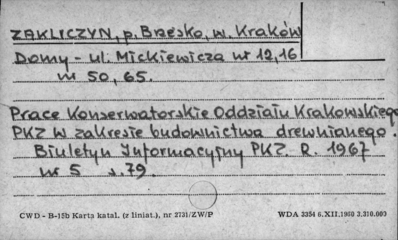 ZAKLICZYN, p. Brzesko, w. Kraków
Domy - ul. Mickiewicza nr 12, 16
nr 50, 65.
Prace Konserwatorskie Oddziału Krakowskiego
PKZ w zakresie budownictwa drewnianego.
Biuletyn Informacyjny PKZ. R. 1967
nr 5 s. 79.
CWD - B-15b Karta katal. (z liniat.), nr 2731/ZW/P WDA 3354 6.XII.1960 3.310.000